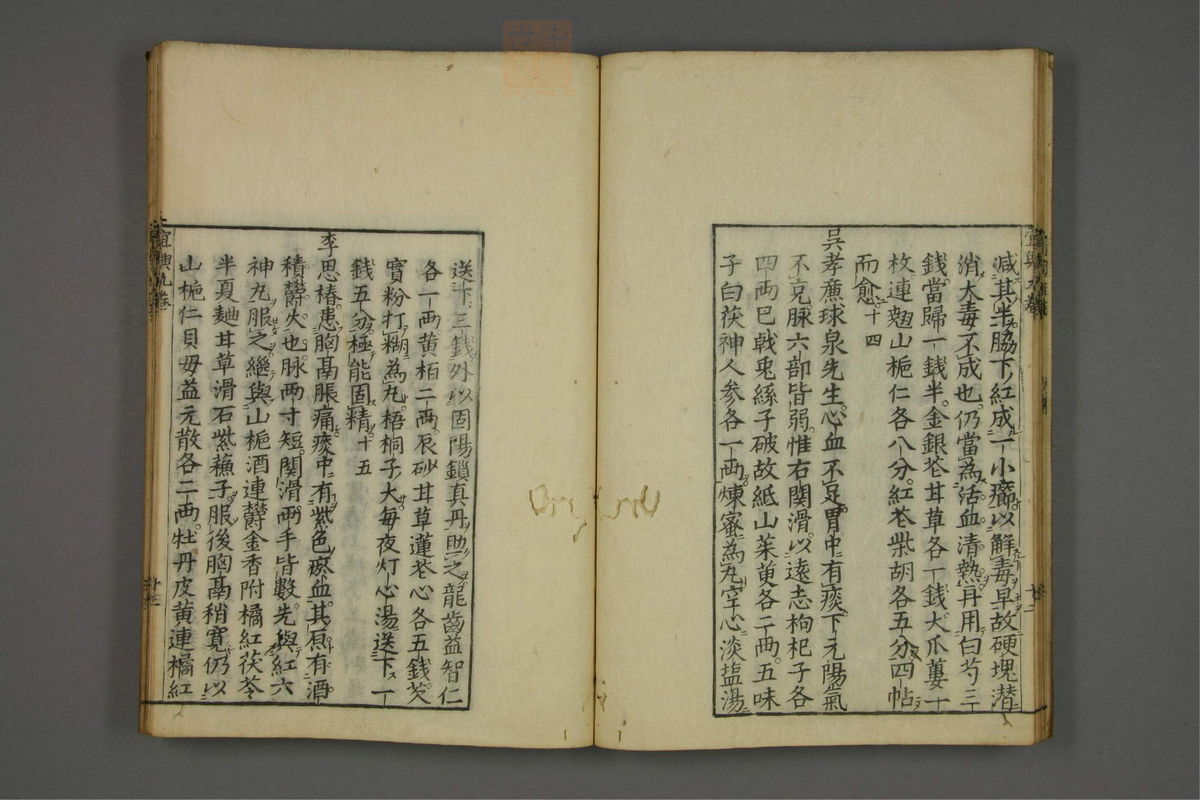 減其半脇下紅成一小癤以解毒早故硬塊潜
消大毒不成也仍當為活血清熱再用白芍三
錢當歸一錢半金銀花甘草各一錢大瓜蔞十
枚連翹山梔仁各八分紅花柴胡各五分四帖
而愈十四
吳孝廉球泉先生心血不足胃中有痰下元陽氣
不克脉六部皆弱惟右関滑以遠志枸杞子各
四両巴戟兎絲子破故紙山茱萸各二両五味
子白茯神人参各一両煉蜜為丸空心淡塩湯
送下三錢外以固陽鎖真丹助之龍齒益智仁
各一両黄栢二両辰砂甘草蓮花心各五錢芡
實粉打糊為丸梧桐子大毎夜灯心湯送下一
錢五分極能固精十五
李思椿患胸膈脹痛痰中有紫色瘀血其原有酒
積欝火也脉両寸短関滑両手皆數先與紅六
神丸服之繼與山梔酒連欝金香附橘紅茯苓
半夏麯甘草滑石紫蘓子服後胸膈稍寛仍以
山梔仁貝母益元散各二両牡丹皮黄連橘紅